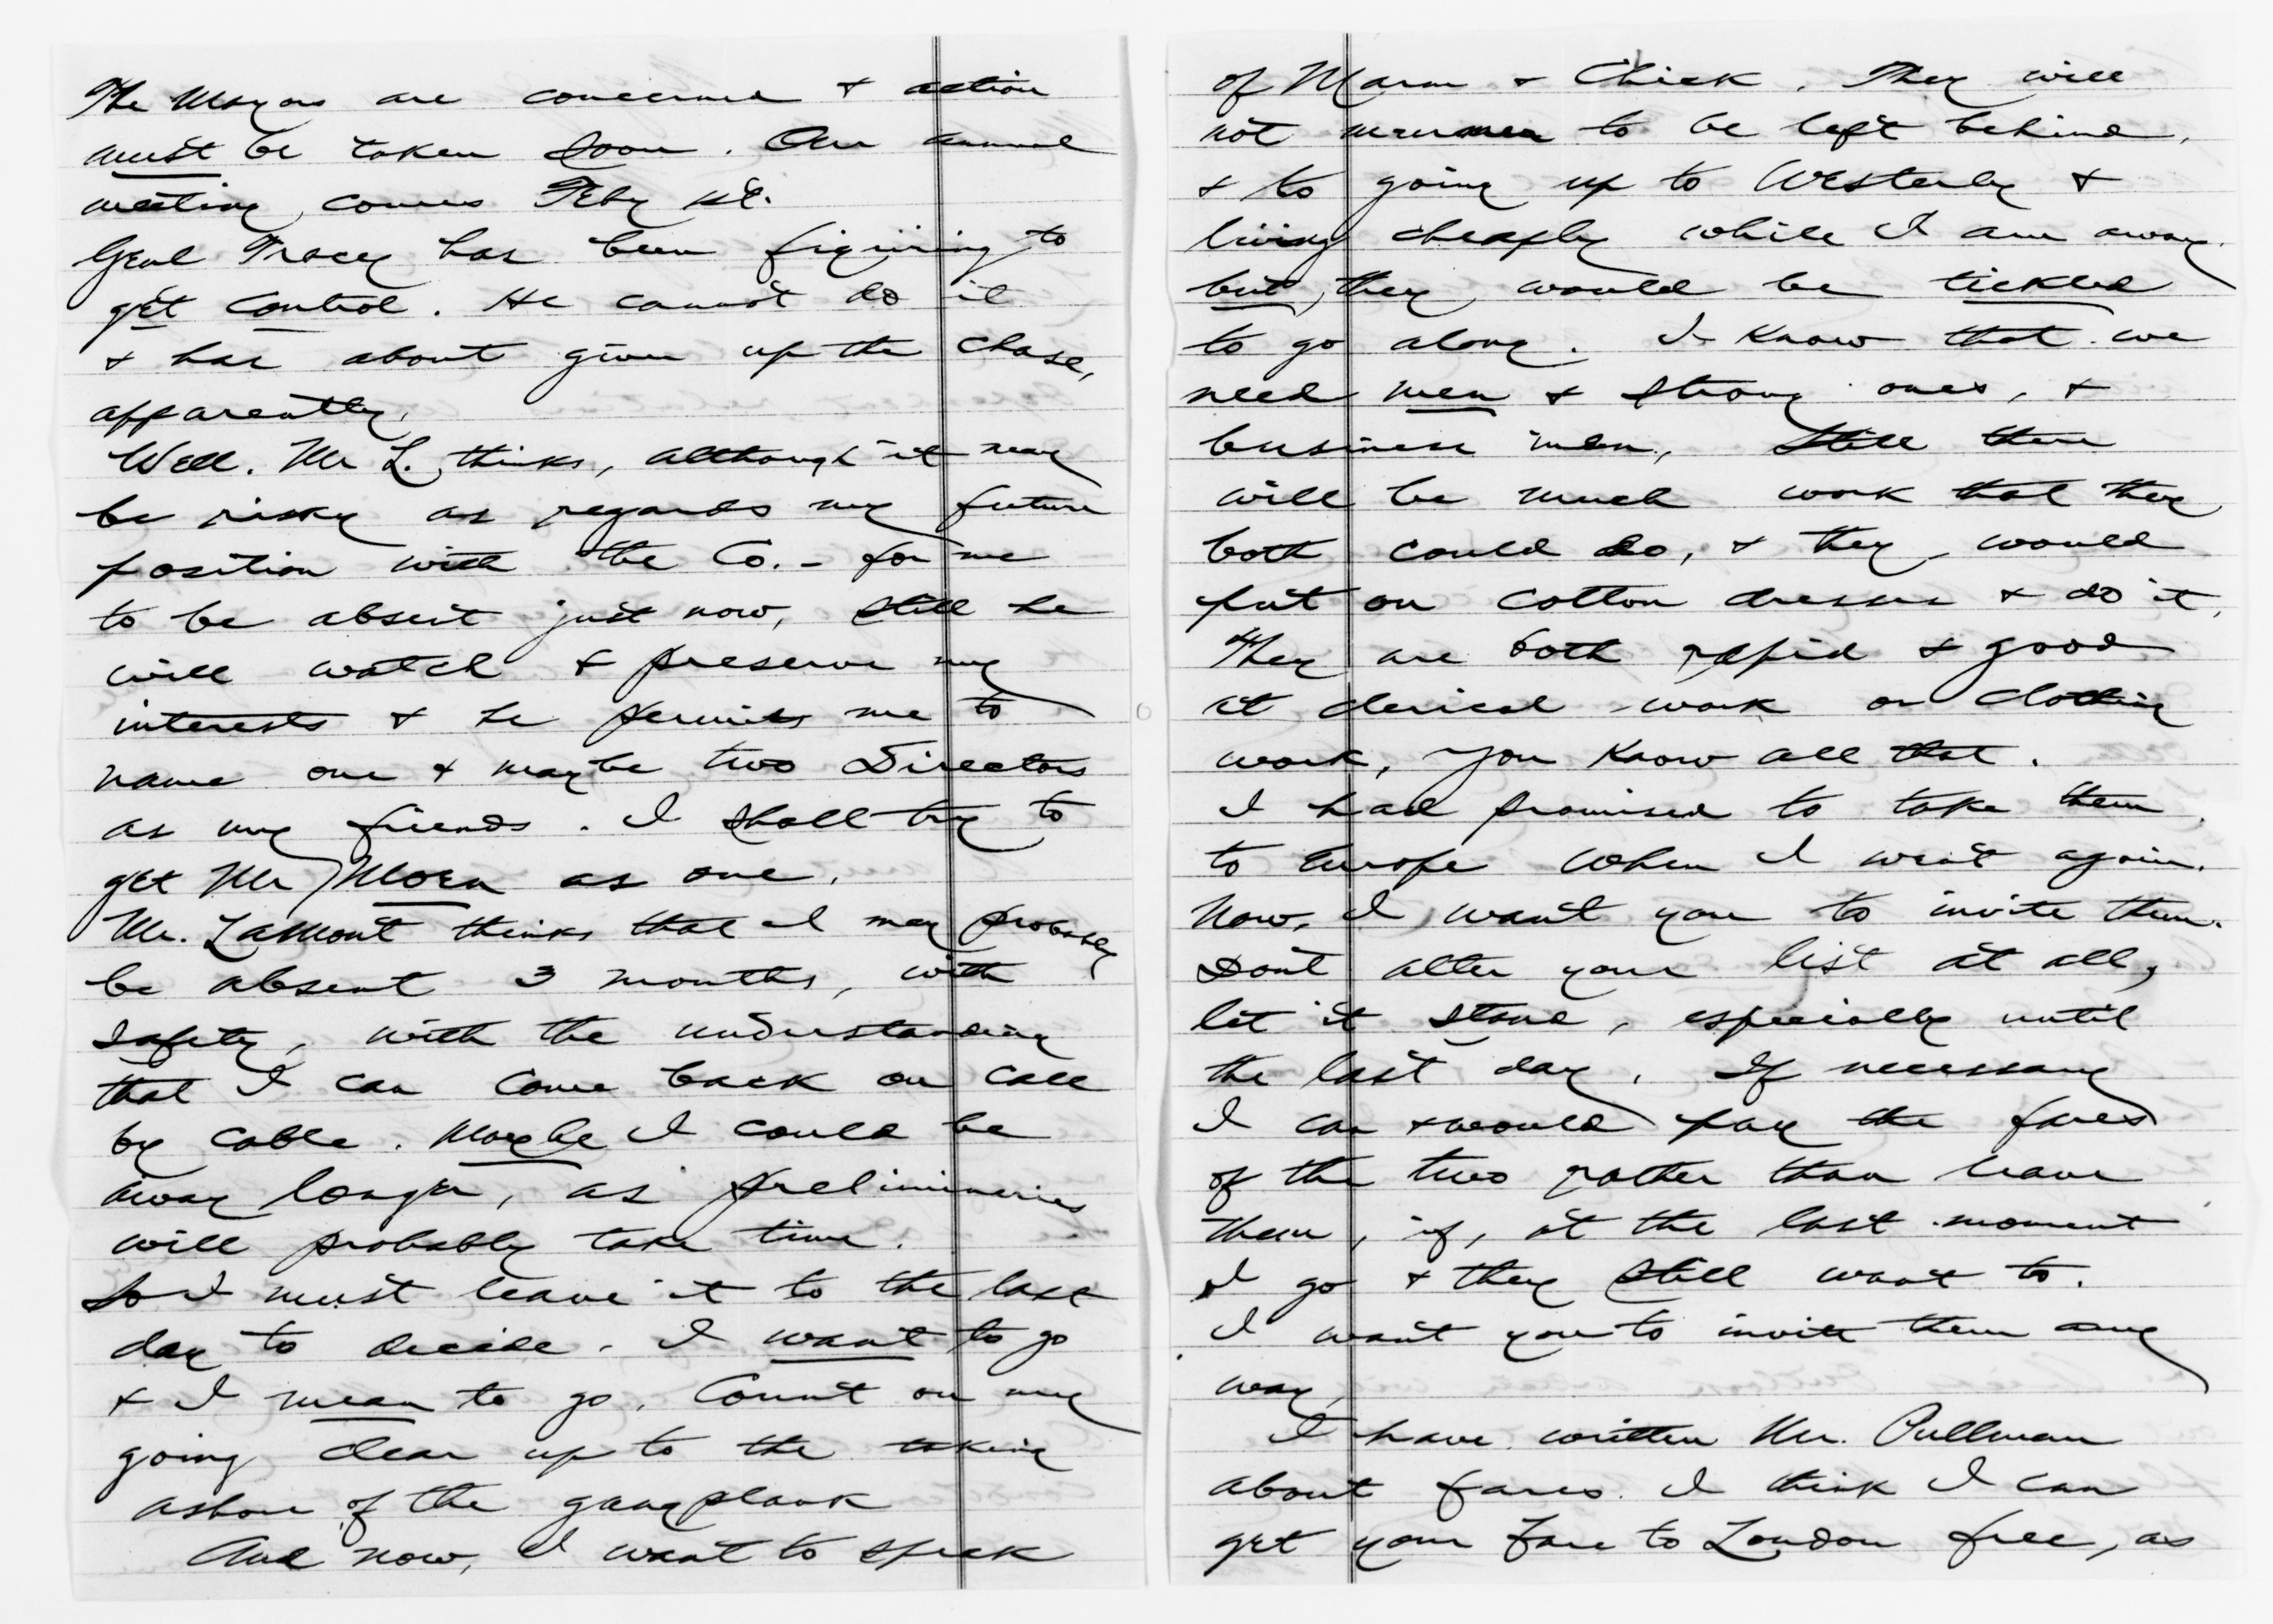 The Mayors are concerned & action
must be taken soon. Our annual
meeting comes Feby
Genl Tracy has been figuring to
get control. He cannot do it
& has about given up the chase,
apparently.
Well. Mr L. thinks, although it may
be risky as regards my future
position with the Co. - for me
to be absent just now, still he
will watch & preserve my
interests & he permits me to
name one & maybe two Directors
as my friends. I shall try to
get Mr as one.
Mr. Lamont thinks that I may probably
be absent 3 months, with
safety, with the understanding
that I can come back on call
by cable. Maybe I could be
away longer, as preliminaries
will probably take time.
So I must leave it to the last
day to decide. I want to go
& I mean to go. Count on my
going clear up to the taking
ashore of the gangplank
And now, I want to speak
of Marm & Chick. They will
not murmur to be left behind,
& to going up to Westerly &
living cheaply while I am away.
but, they would be tickled
to go along. I know that we
need men & strong ones, &
business men, still there
will be much work that they
both could do, & they would
put on cotton dresses & do it.
They are both rapid & good
at clerical work or clothing
work, you know all that.
I had promised to take them
to Europe when I went again.
Now, I want you to invite them.
Dont alter your list at all,
let it stand, especially until
the last day. If necessary
I can & would pay the fares
of the two rather than leave
them, if, at the last moment
I go & they still want to.
I want you to invite them any
way.
I have written Mr. Pullman
about fares. I think I can
get your fare to London free, as